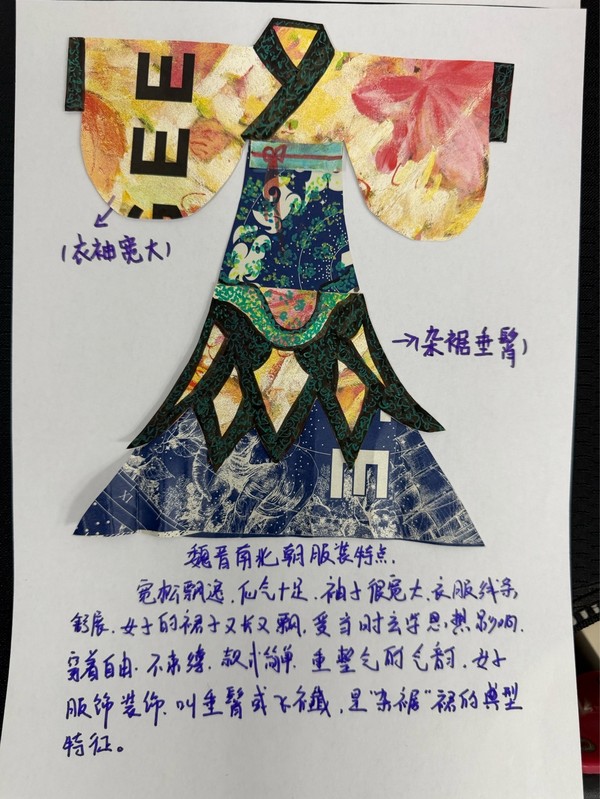 (衣袖宽大)
(杂裾垂髾)
魏晋南北朝服装特点.
宽松飘逸.仙气十足.袖子很宽大.衣服线条
舒展.女子的裙子又长又飘.受当时玄学思想影响.
穿着自由.不束缚.款式简单.重整气的气韵.女子
服饰装饰.叫垂髾或飞襳,是"杂裾"裙的典型
特征。
EE